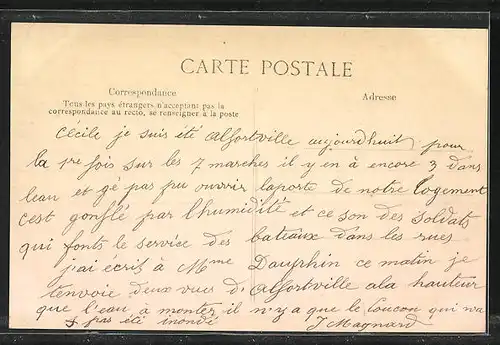 CARTE POSTALE
Correspondance
Tous les pays étrangers n'acceptent pas la
correspondance au recto, se renseigner à la poste
Adresse
Cécile je suis été Alfortville aujourdhuit pour
la pre fois sur les 7 marches il y en à encore 3 dans
leau et gé pas pu ouvrir laporte de notre logement
cest gonflé par l'humidité et ce son des soldats
qui fonts le service des bateaux dans les rues
j'ai écris à Mme Dauphin ce matin je
tenvoie deux vues d'Alfortville ala hauteur
que l'eau à monter il n'y a que le Coucou qui na
pas été inondé J Magnard